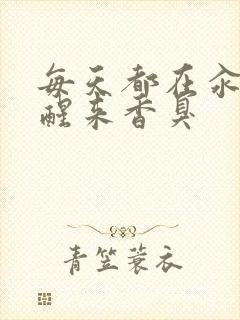 每天都在汆
醒来香臭
青笠蓑衣